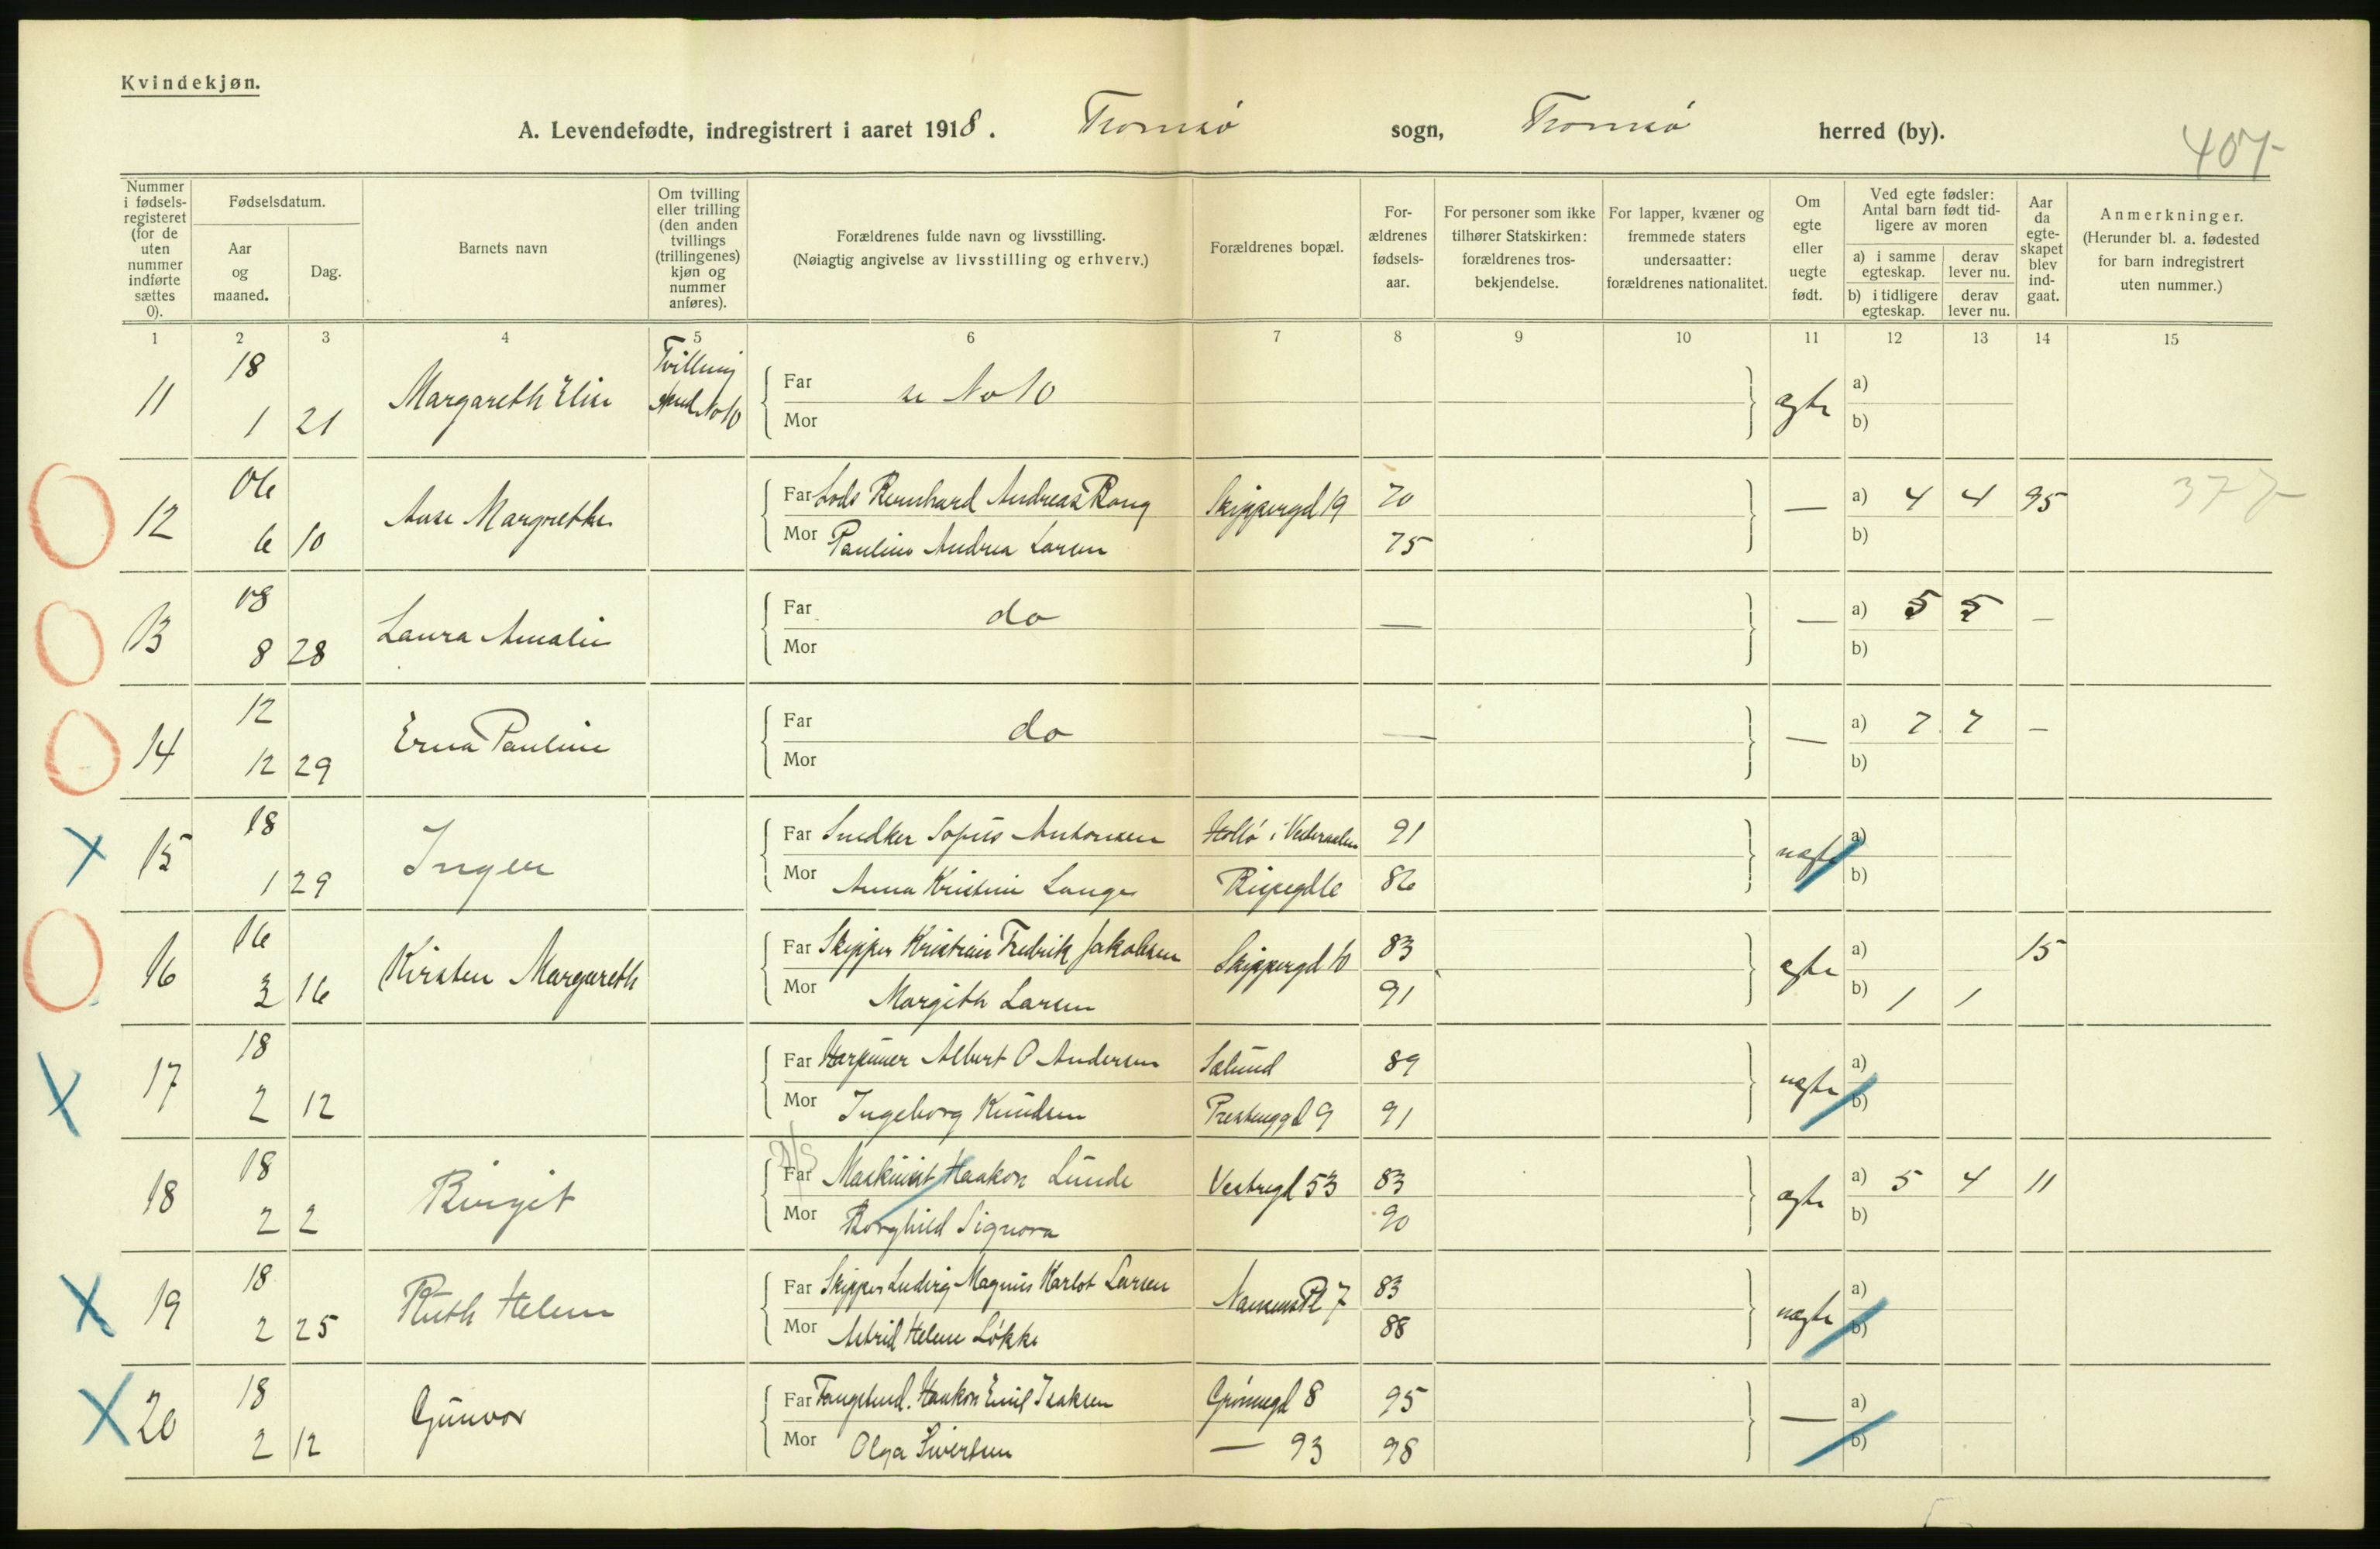 Kvindekjøn.
A. Levendefødte, indregistrert i aaret 1918. Tromsø sogn, Tromsø herred (by).
407
Nummer i fødsels-registeret (for de uten nummer indførte sættes 0).
Fødselsdatum.
Aar og maaned.
Dag.
Barnets navn
Om tvilling eller trilling (den anden tvillings (trillingenes) kjøn og nummer anføres).
Forældrenes fulde navn og livsstilling.
(Nøiagtig angivelse av livsstilling og erhverv.)
Forældrenes bopæl.
For-ældrenes fødsels-aar.
For personer som ikke tilhører Statskirken: forældrenes tros-bekjendelse.
For lapper, kvæner og fremmede staters undersaatter: forældrenes nationalitet.
Om egte eller uegte født.
Ved egte fødsler: Antal barn født tid-ligere av moren
a) i samme egteskap.
derav lever nu.
b) i tidligere egteskap.
derav lever nu.
Aar da egte-skapet blev ind-gaat.
Anmerkninger.
(Herunder bl. a. fødested for barn indregistrert uten nummer.)
1 2 3 4 5 6 7 8 9 10 11 12 13 14 15
11 18 1 21 Margareth Elise Tvilling No 10 Far se No 10 egte a)
Mor b)
12 06 6 10 Aase Margrethe Far Lods Bernhard Andreas Rong Skippergd 19 70 — a) 4 4 95 377
Mor Pauline Andrea Larsen 75 b)
13 08 8 28 Laura Amalie Far do — — a) 5 5 —
Mor b)
14 12 12 29 Erna Pauline Far do — — a) 7 7 —
Mor b)
15 18 1 29 Inger Far Snedker Sofus Antonsen i Vesteraalen 91 uegte a)
Mor Anna Kristine Lange 86 b)
16 16 3 16 Kirsten Margareth Far Skipper Kristian Fredrik Jakobsen Skippergd 10 83 egte a) 15
Mor Margith Larsen 91 b) 1 1
17 18 2 12 Far Harpuner Albert O Andersen 89 uegte a)
Mor Ingeborg Knudsen 9 91 b)
18 18 2 2 Birgit Far Maskinist Haakon Lunde Vestregd 53 83 egte a) 5 4 11
Mor Borghild Signora 90 b)
19 18 2 25 Ruth Helene Far Skipper Ludvig Magnus Karlot Larsen Nansens Pl 7 83 uegte a)
Mor Astrid Helene Løkke 88 b)
20 18 2 12 Gunvor Far Fangstmd. Haakon Emil Isaksen Grønnegd 8 95 — a)
Mor Olga Sivertsen — 93 98 b)